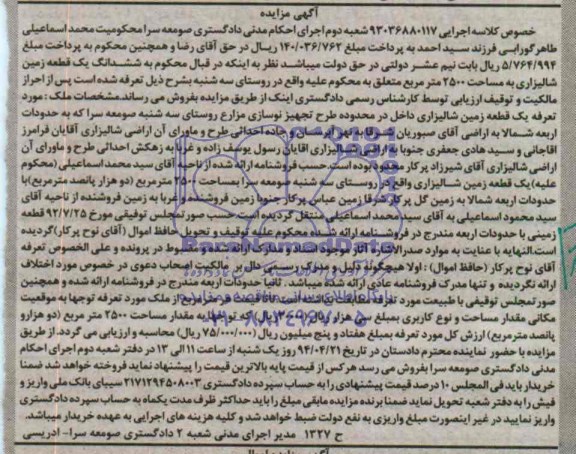 آگهی مزایده
خصوص کلاسه اجرایی ۹۳۰۳۶۸۸۰۱۱۷ شعبه دوم اجرای احکام مدنی دادگستری صومعه سرا محکومیت محمد اسماعیلی
طاهر گورابی فرزند سید احمد به پرداخت مبلغ ۱۴۰/۰۳۶/۷۶۲ ریال در حق آقای رضا و همچنین محکوم به پرداخت مبلغ
۵/۷۶۴/۹۹۴ ریال بابت نیم عشر دولتی در حق دولت میباشد نظر به اینکه در قبال محکوم به ششدانگ یک قطعه زمین
شالیزاری به مساحت ۲۵۰۰ متر مربع متعلق به محکوم علیه واقع در روستای سه شنبه بشرح ذیل تعرفه شده است پس از احراز
مالکیت و توقیف ارزیابی توسط کارشناس رسمی دادگستری اینک از طریق مزایده بفروش می رساند.مشخصات ملک : مورد
تعرفه یک قطعه زمین شالیزاری داخل در محدوده طرح تجهیز نوسازی مزارع روستای سه شنبه صومعه سرا که به حدودات
اربعه شمالا به اراضی آقای صبوریان شرقا به نهر و جاده احداثی طرح و ماورای آن اراضی شالیزاری آقایان فرامرز
اقاجانی و سید هادی جعفری جنوبا به اراضی شالیزاری اقایان رسول یوسف زاده و غربا به زهکش احداثی طرح و ماورای آن
اراضی شالیزاری آقای شیرزاد پرکار محدود بوده است.حسب فروشنامه ارائه شده از ناحیه آقای سید محمد اسماعیلی (محکوم
علیه) یک قطعه زمین شالیزاری واقع در روستای سه شنبه صومعه سرا بمساحت ۲۵۰۰ متر مربع (دو هزار پانصد مترمربع) با
حدودات اربعه شمالا به زمین گل پرکار شرقا زمین عباس پرکار جنوبا زمین فروشنده و غربا به زمین فروشنده از ناحیه آقای
سید محمود اسماعیلی به آقای سید محمد اسماعیلی منتقل گردیده است حسب صورتمجلس توقیفی مورخ ۹۲/۷/۲۵ قطعه
زمینی با حدودات اربعه مندرج در فروشنامه ارائه شده محکوم علیه توقیف و تحویل حافظ اموال (آقای نوح پرکار) گردیده
است.النهایه با عنایت به موارد صدرالاشاره آثار موجود اسناد و مدارک ارائه شده و مضبوط در پرونده و علی الخصوص تعرفه
آقای نوح پرکار (حافظ اموال) : اولا هیچگونه دلیل و مدرکی رسمی دال بر مالکیت اصحاب دعوی در خصوص مورد اختلاف
ارائه نگردیده و تنها مدرک فروشنامه عادی ارائه شده میباشد . ثانیا حدودات اربعه مندرج در فروشنامه ارائه شده و همچنین
صورتمجلس توقیفی با طبیعت مورد تعرفه مطابقت نداشته است ارزش ملک مورد تعرفه توجها به موقعیت
مکانی مقدار مساحت و نوع کاربری بمبلغ سی هزار ریال که توجها به مقدار مساحت ۲۵۰۰ متر مربع (دو هزار و
پانصد متر مربع) ارزش کل مورد تعرفه بمبلغ هفتاد و پنج میلیون ریال (۷۵/۰۰۰/۰۰۰ ریال) محاسبه و ارزیابی می گردد. از طریق
مزایده با حضور نماینده محترم دادستان در تاریخ ۹۴/۰۴/۲۱ روز یک شنبه از ساعت ۱۱ الی ۱۳ در دفتر شعبه دوم اجرای احکام
مدنی دادگستری صومعه سرا بفروش می رسد هر کس از قیمت پایه بالاترین قیمت را پیشنهاد نماید فروخته خواهد شد ضمنا
خریدار باید فی المجلس ۱۰ درصد قیمت پیشنهادی را به حساب سپرده دادگستری ۲۱۷۱۲۹۴۵۰۸۰۰۳ سیبای بانک ملی واریز و
فیش را به دفتر شعبه تحویل نماید ضمنا برنده مزایده مابقی مبلغ را باید حداکثر ظرف مدت یکماه به حساب سپرده دادگستری
واریز نمایید در غیر اینصورت مبلغ واریزی به نفع دولت ضبط خواهد شد و کلیه هزینه های اجرایی به عهده خریدار میباشد.
ح ۱۳۲۷ مدیر اجرای مدنی شعبه ۲ دادگستری صومعه سرا- ادریسی